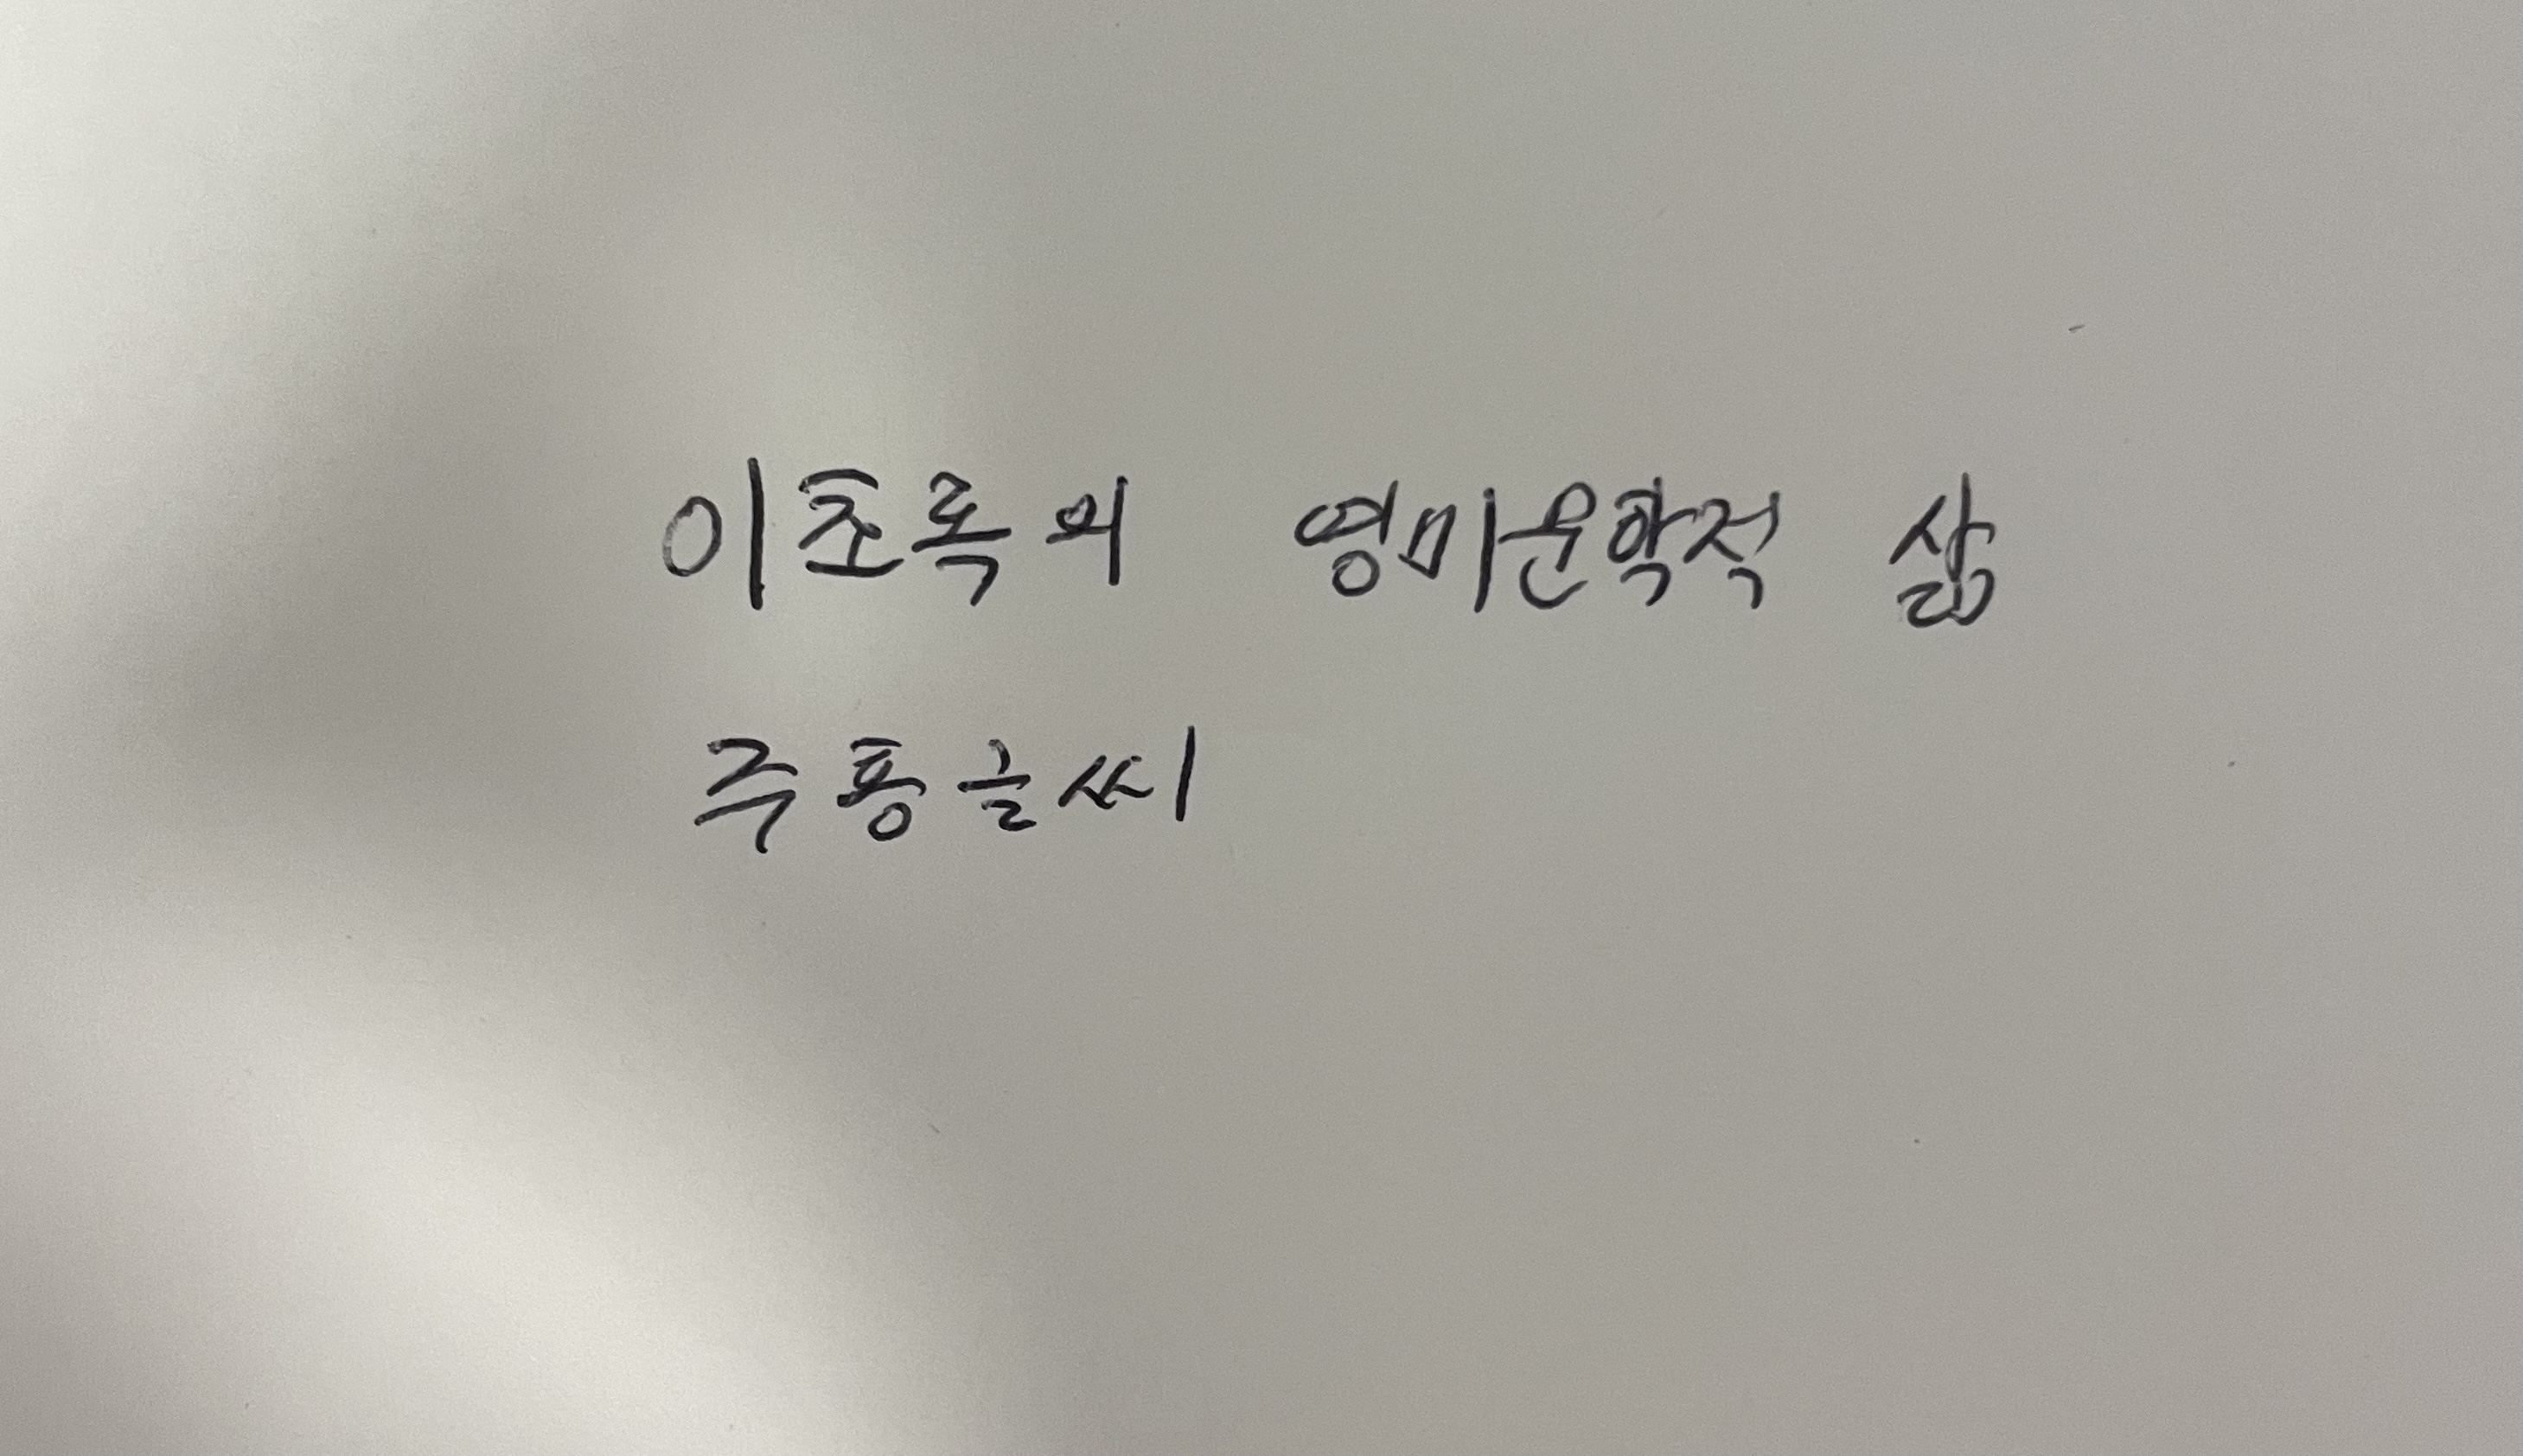 이초록의 영미문학적 삶
주퐁글씨